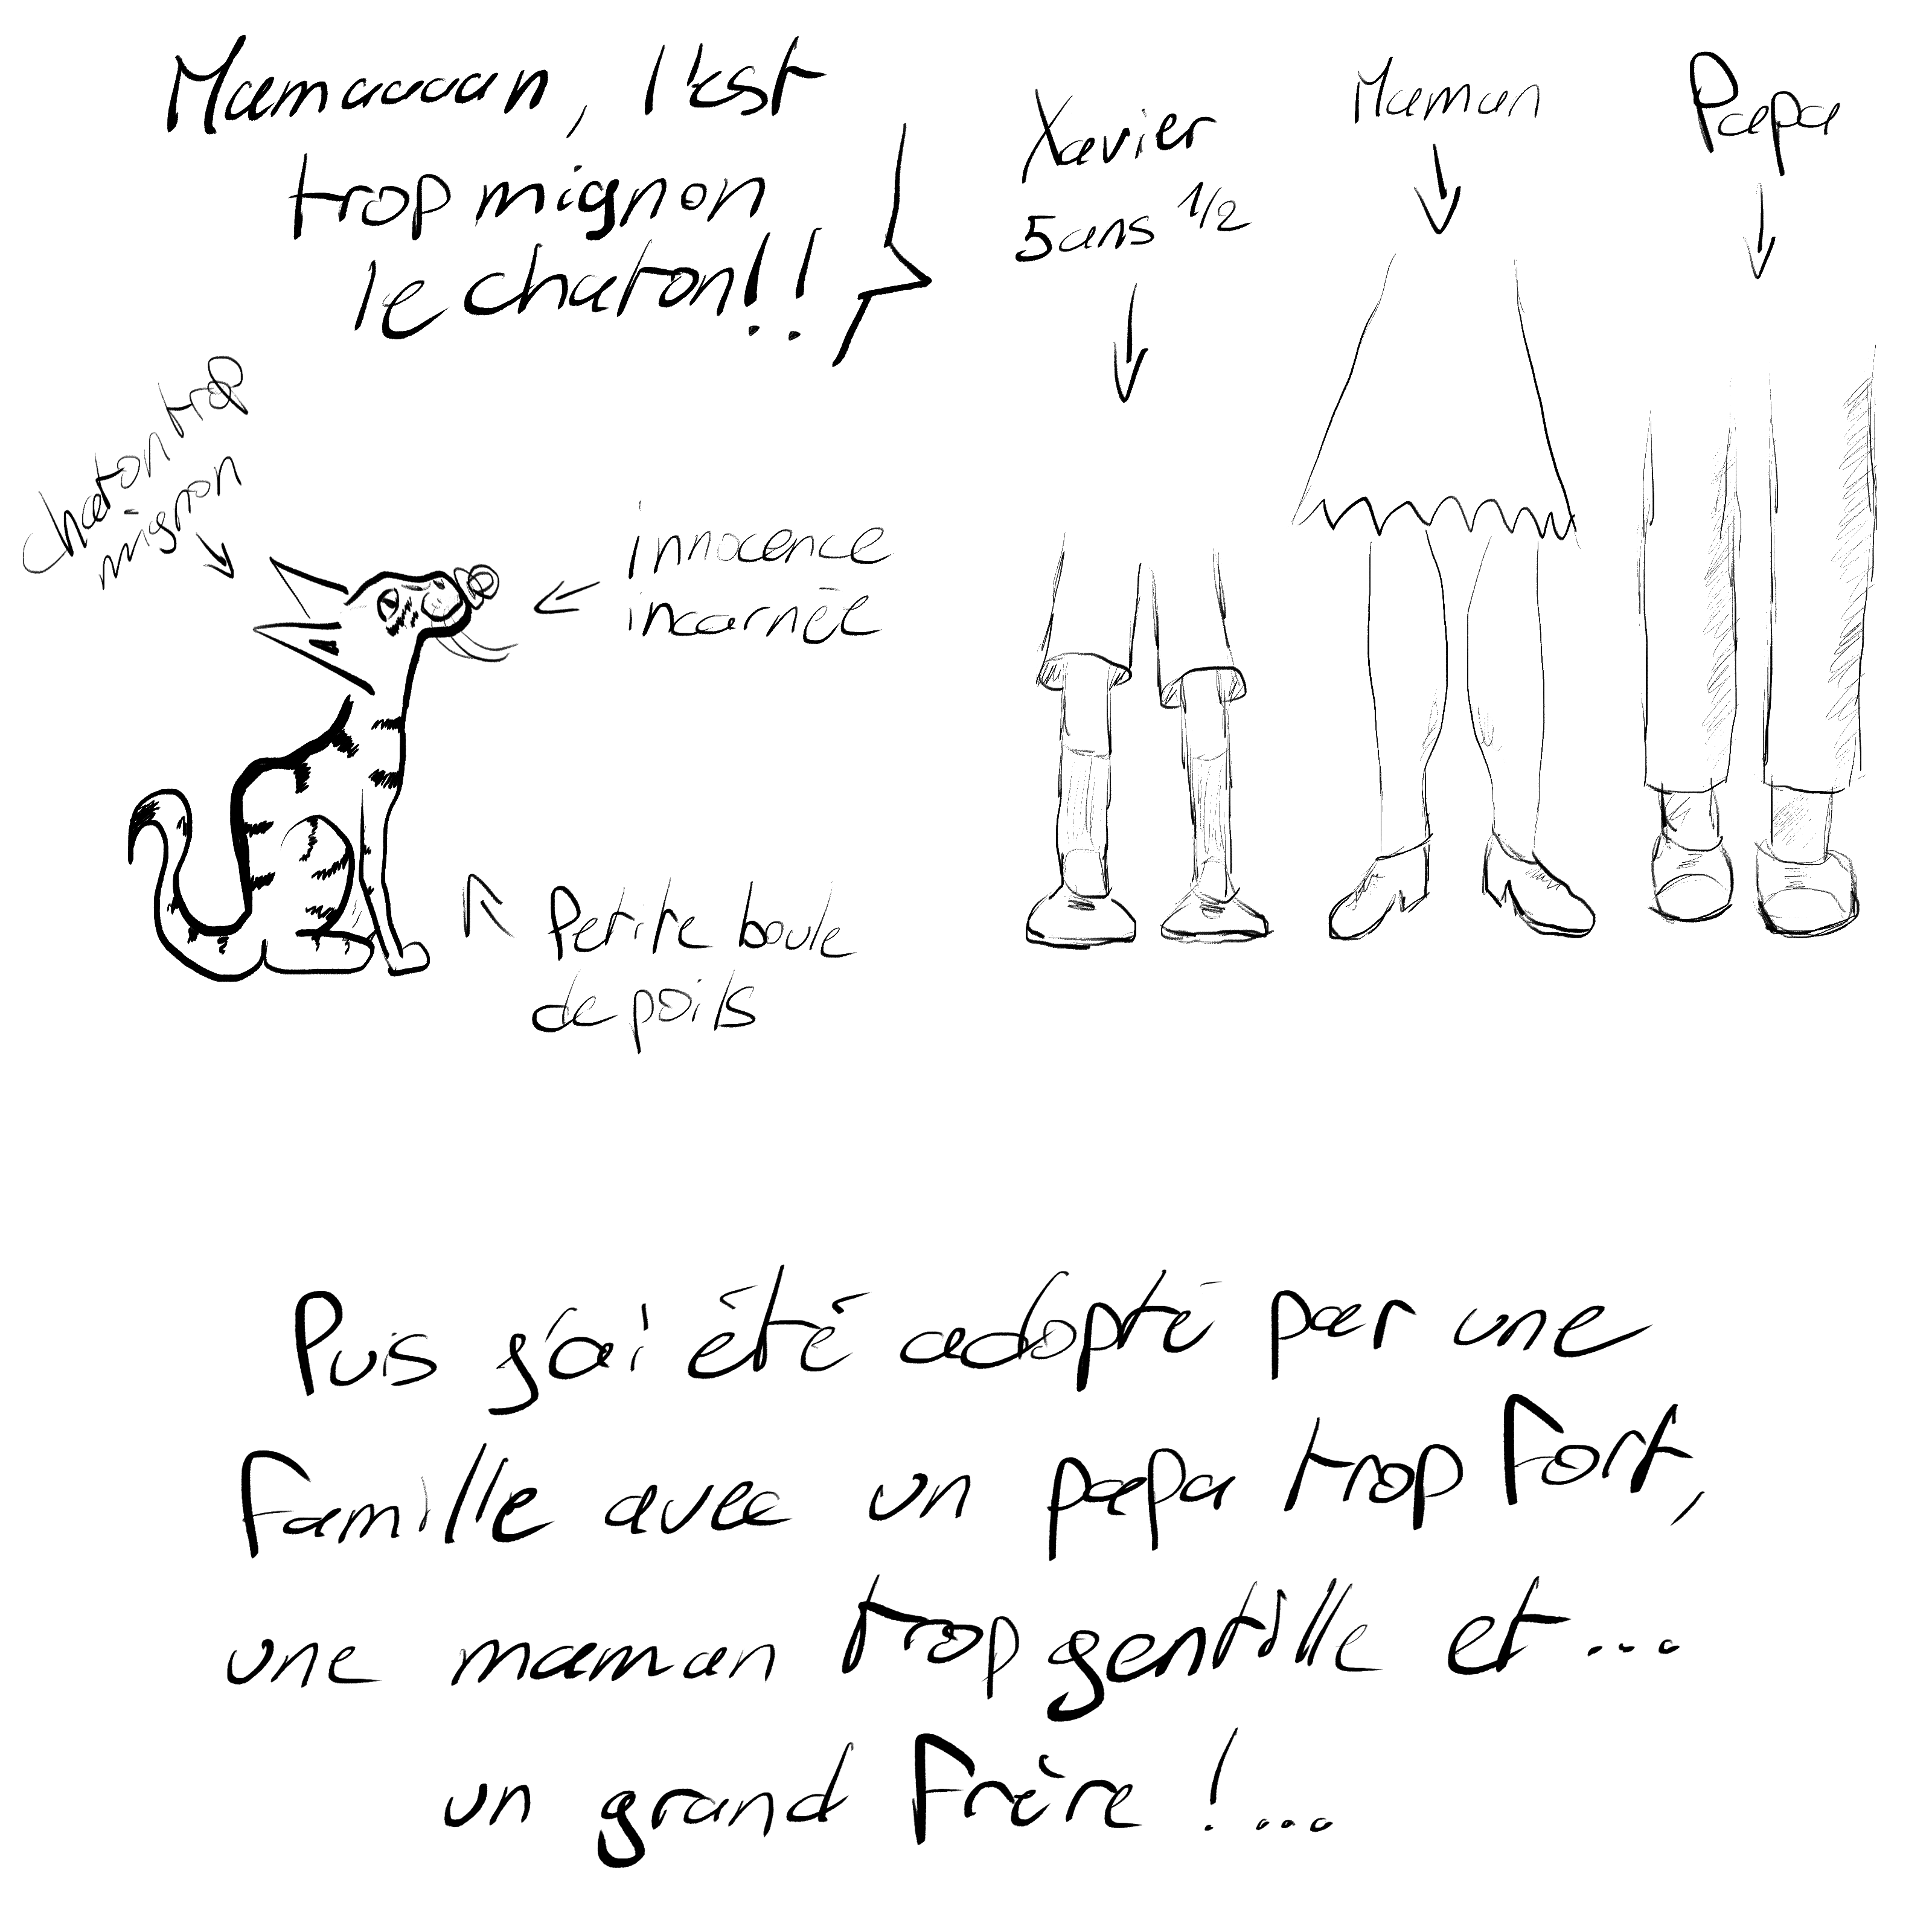 Mamaaaan, l'est
trop mignon
le chaton!!
Xavier
5 ans 1/2
Maman
Papa
chaton trop
mignon
innocence
incarnée
Petite boule
de poils
Puis j'ai été adopté par une
Famille avec un papa trop Fort,
une maman trop gentille et ...
un grand Frère !...